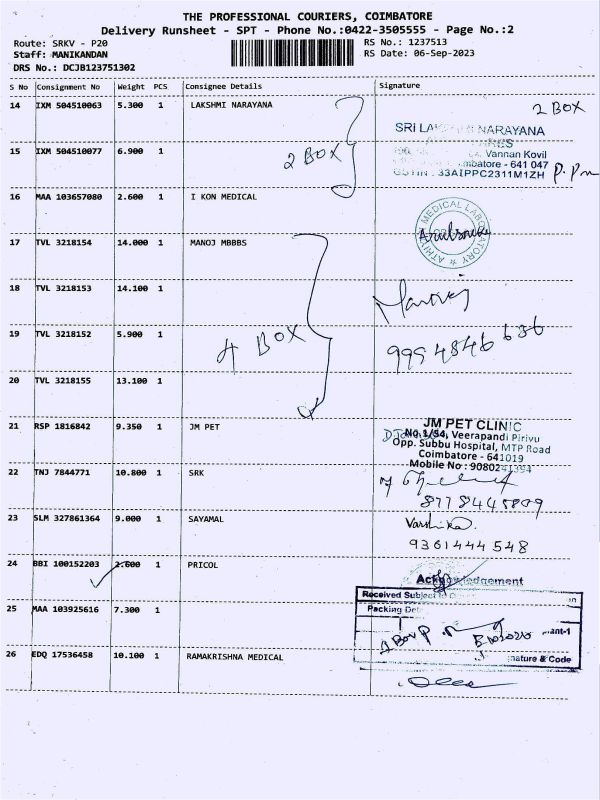 THE PROFESSIONAL COURIERS, COIMBATORE
Delivery Runsheet - SPT - Phone No.:0422-3505555 - Page No.:2
Route: SRKV - P20
RS No.: 1237513
Staff: MANIKANDAN
RS Date: 06-Sep-2023
DRS No.: DCJB123751302
S No Consignment No Weight PCS Consignee Details Signature
14 IXM 504510063 5.300 1 LAKSHMI NARAYANA 2 BOX
SRI NARAYANA
15 IXM 504510077 6.900 1 2 BOX
Vannan Kovil
- 641 047
: 33AIPPC2311M1ZH
16 MAA 103657080 2.600 1 I KON MEDICAL
MEDICAL LABORATORY
17 TVL 3218154 14.000 1 MANOJ MBBBS
18 TVL 3218153 14.100 1
19 TVL 3218152 5.900 1 4 BOX 9994846636
20 TVL 3218155 13.100 1
21 RSP 1816842 9.350 1 JM PET
JM PET CLINIC
No.1/54, Veerapandi Pirivu
Opp. Subbu Hospital, MTP Road
Coimbatore - 641019
Mobile No : 9080241394
22 TNJ 7844771 10.800 1 SRK
8778445809
23 SLM 327861364 9.000 1 SAYAMAL
Varshika.
9361444548
24 BBI 100152203 2.600 1 PRICOL
Acknowledgement
Received Subject to
25 MAA 103925616 7.300 1
Packing
26 EDQ 17536458 10.100 1 RAMAKRISHNA MEDICAL
& Code